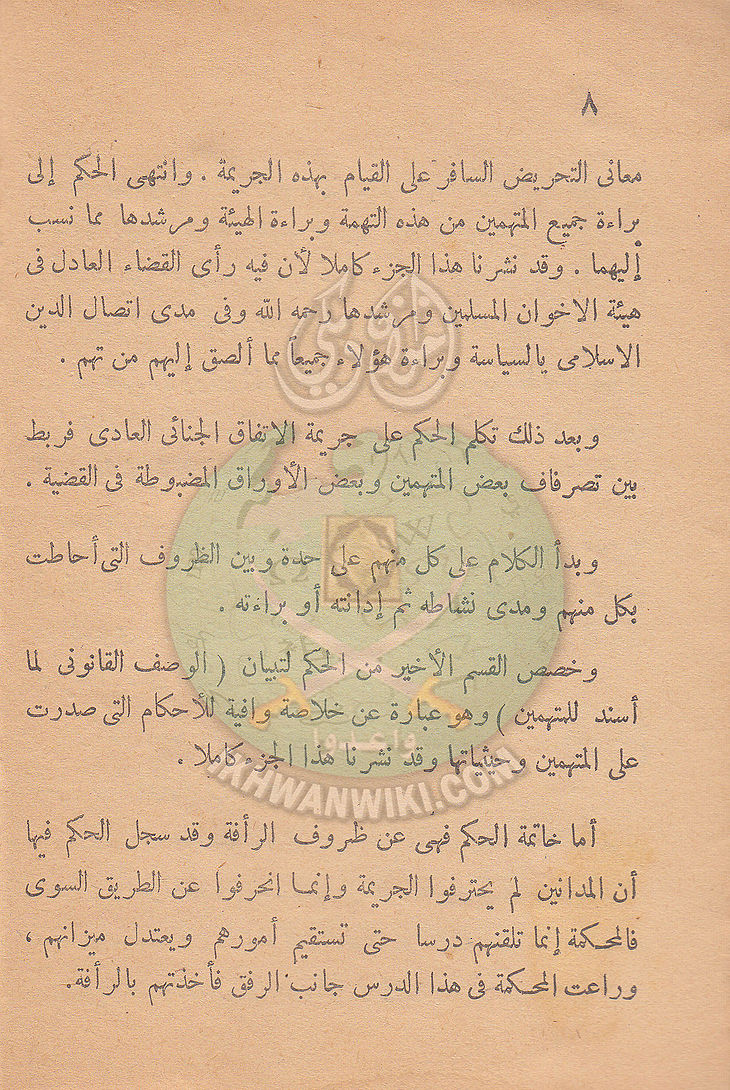 ٨
معانى التحريض السافر على القيام بهذه الجريمة . وانتهى الحكم إلى
براءة جميع المتهمين من هذه التهمة وبراءة الهيئة ومرشدها مما نسب
إليهما . وقد نشرنا هذا الجزء كاملا لأن فيه رأى القضاء العادل فى
هيئة الاخوان المسلمين ومرشدها رحمه الله وفى مدى اتصال الدين
الاسلامى بالسياسة وبراءة هؤلاء جميعاً مما ألصق إليهم من تهم .
وبعد ذلك تكلم الحكم على جريمة الاتفاق الجنائى العادى فربط
بين تصرفاف بعض المتهمين وبعض الأوراق المضبوطة فى القضية .
وبدأ الكلام على كل منهم على حدة وبين الظروف التى أحاطت
بكل منهم ومدى نشاطه ثم إدانته أو براءته .
وخصص القسم الأخير من الحكم لتبيان ( الوصف القانونى لما
أسند للمتهمين ) وهو عبارة عن خلاصة وافية للأحكام التى صدرت
على المتهمين وحيثياتها وقد نشرنا هذا الجزء كاملا .
واعدوا
IKHWANWIKI.COM
أما خاتمة الحكم فهى عن ظروف الرأفة وقد سجل الحكم فيها
أن المدانين لم يحترفوا الجريمة وإنما انحرفوا عن الطريق السوى
فالمحكمة إنما تلقنهم درسا حتى تستقيم أمورهم ويعتدل ميزانهم ،
وراعت المحكمة فى هذا الدرس جانب الرفق فأخذتهم بالرأفة.